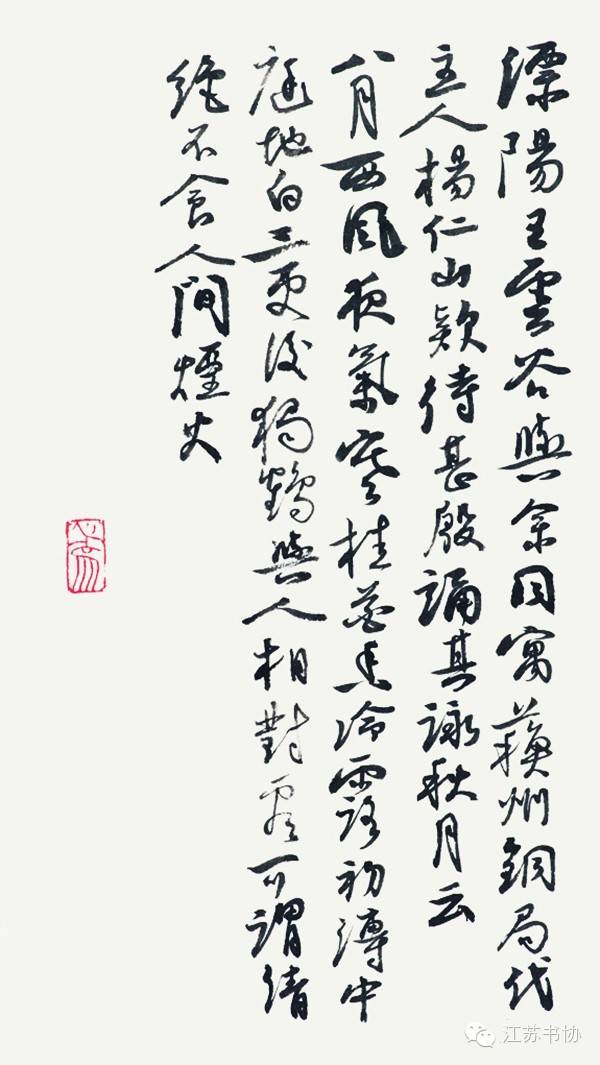 溧陽王雲谷與余同寓蘓州銅局代
主人楊仁山欵待甚殷誦其詠秋月云
八月西風夜氣寒桂花香冷露初漙中
庭地白三更後獨鶴與人相對看可謂清
絶不食人間煙火
江苏书协